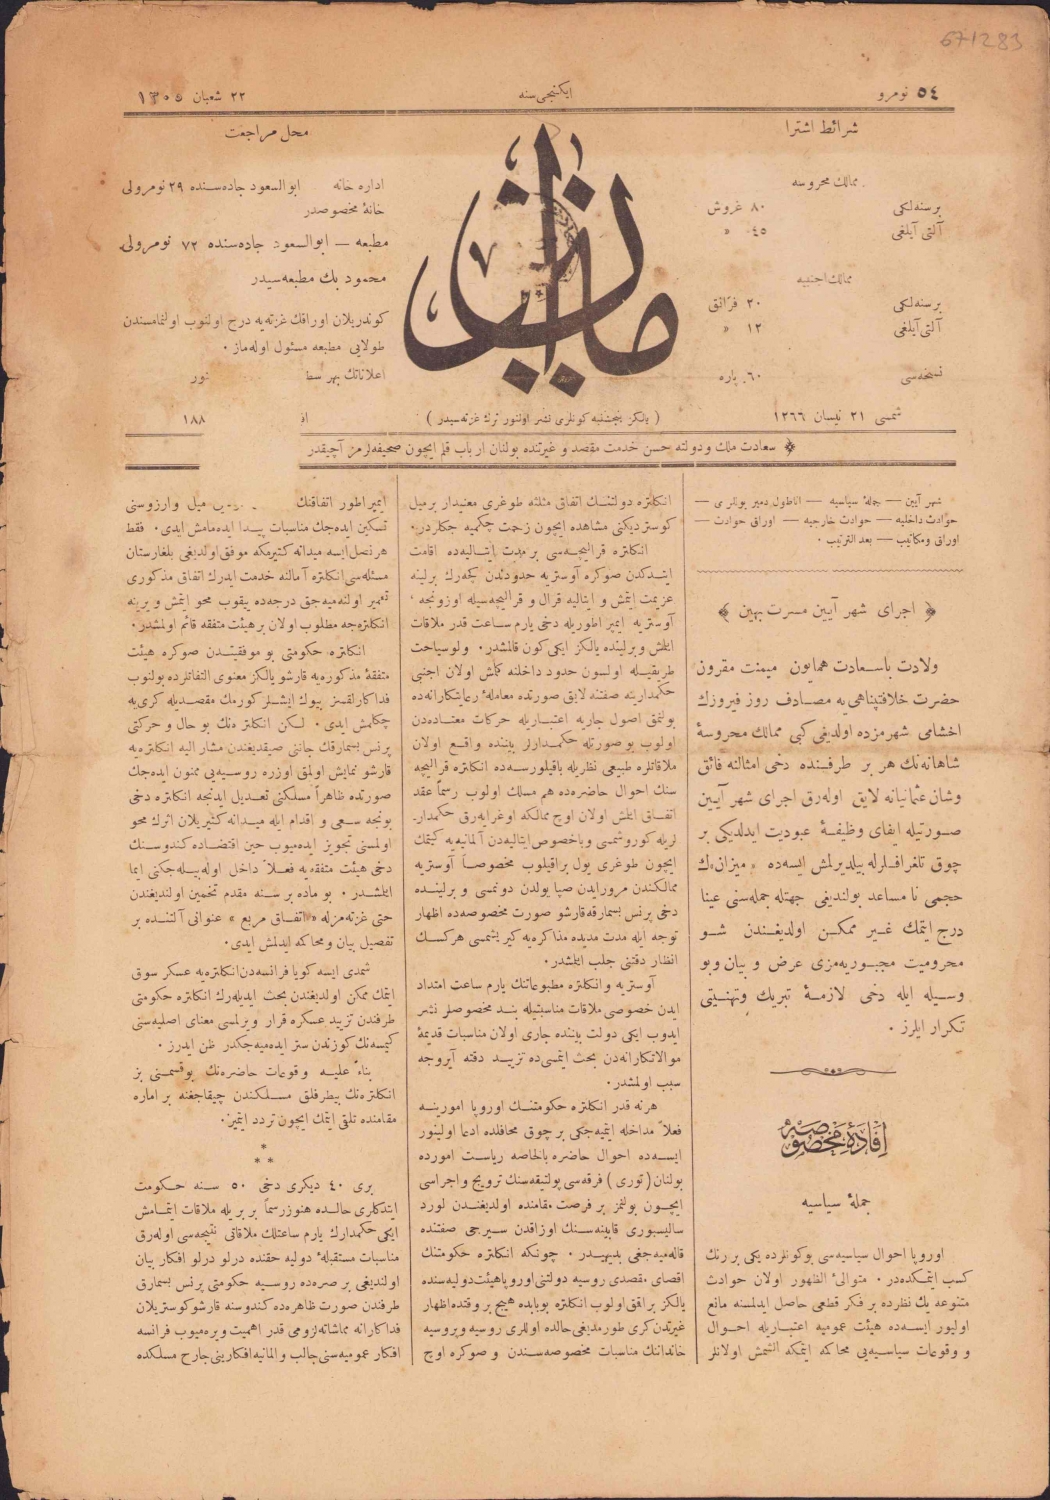 671283
نومرو ٥٤
ایكنجی سنه
٢٢ شعبان ١٣٠٥
شرائط اشترا
ممالك محروسه
برسنه‌لكی ٨٠ غروش
آلتی آیلغی ٤٥ «
ممالك اجنبیه
برسنه‌لكی ٢٠ فرانق
آلتی آیلغی ١٢ «
نسخه‌سی ٦٠ پاره
شمسی ٢١ نیسان ١٢٦٦
میزان
( یالكز پنجشنبه كونلری نشر اولنور ترك غزته‌سیدر )
محل مراجعت
اداره خانه ابوالسعود جاده‌سنده ٢٩ نومرولی
خانهٔ مخصوصدر
مطبعه — ابوالسعود جاده‌سنده ٧٢ نومرولی
محمود بك مطبعه‌سیدر
كوندریلان اوراقك غزته‌یه درج اولنوب اولنمامسندن
طولایی مطبعه مسئول اوله‌ماز .
اعلاناتك بهر سط
١٨٨
سعادت ملك ودولته حسن خدمت مقصد وغیرتنده بولنان ارباب قلم ایچون صحیفه‌لرمز آچیقدر
شهر آیین — جملهٔ سیاسیه — اناطولی دمیر یوللری —
حوادث داخلیه — حوادث خارجیه — اوراق حوادث —
اوراق ومكاتیب — بعد الترتیب .
اجرای شهر آیین مسرت بهین
ولادت باسعادت همایون میمنت مقرون
حضرت خلافتپناهی‌یه مصادف روز فیروزك
اخشامی شهرمزده اولدیغی كبی ممالك محروسهٔ
شاهانه‌نك هر بر طرفنده دخی امثالنه فائق
وشان عثمانیانه لایق اوله‌رق اجرای شهر آیین
صورتیله ایفای وظیفهٔ عبودیت ایدلدیكی بر
چوق تلغرافلرله بیلدیرلمش ایسه‌ده « میزان »ك
حجمی نامساعد بولندیغی جهتله جمله‌سنی عینا
درج ایتمك غیر ممكن اولدیغندن شو
محرومیت مجبوریه‌مزی عرض و بیان وبو
وسیله ایله دخی لازمهٔ تبریك وتهنیتی
تكرار ایلرز .
افادهٔ مخصوصه
جملهٔ سیاسیه
اوروپا احوال سیاسیه‌سی بوكونلرده یكی بر رنك
كسب ایتمكده‌در . متوالیٔ الظهور اولان حوادث
متنوعه یك نظرده بر فكر قطعی حاصل ایدلمسنه مانع
اولیور ایسه‌ده هیئت عمومیه اعتباریله احوال
و وقوعات سیاسیه‌یی محاكمه ایتمكه آلشمش اولانلر
انكلتره دولتنك اتفاق مثلثه طوغری معنیدار برمیل
كوستردیكنی مشاهده ایچون زحمت چكمیه جكلردر .
انكلتره قرالیچه‌سی بر مدت ایتالیاده اقامت
ایتدكدن صوكره آوستریه حدودندن كچه‌رك برلینه
عزیمت ایتمش و ایتالیه قرال و قرالیچه‌سیله اوزونجه ،
آوستریه ایمپراطوریله دخی یارم ساعت قدر ملاقات
ایتمش وبرلینده یالكز ایكی كون قالمشدر . ولوسیاحت
طریقیله اولسون حدود داخلنه كلمش اولان اجنبی
حكمدارینه صفتنه لایق صورتده معاملهٔ رعایتكارانه‌ده
بولنمق اصول جاریه اعتباریله حركات معتاده‌دن
اولوب بو صورتله حكمدارلر بیننده واقع اولان
ملاقاتلره طبیعی نظریله باقیلورسه‌ده انكلتره قرالیچه
سنك احوال حاضره‌ده هم مسلك اولوب رسماً عقد
اتفاق ایتمش اولان اوچ ممالكه اوغرایه‌رق حكمدار-
لریله كوروشمسی وباخصوص ایتالیه‌دن آلمانیه‌یه كیتمك
ایچون طوغری یول براقیلوب مخصوصاً آوستریه
ممالكندن مرورایدن صپا یولدن دونمسی و برلینده
دخی پرنس بسمارقه قارشو صورت مخصوصه‌ده اظهار
توجه ایله مدت مدیده مذاكره‌یه كیریشمسی هركسك
انظار دقتنی جلب ایتمشدر .
آوستریه و انكلتره مطبوعاتنك یارم ساعت امتداد
ایدن خصوصی ملاقات مناسبتیله بند مخصوصلر نشر
ایدوب ایكی دولت بیننده جاری اولان مناسبات قدیمهٔ
موالاتكارانه‌دن بحث ایتمسی‌ده تزیید دقته آیروجه
سبب اولمشدر .
هر نه قدر انكلتره حكومتنك اوروپا امورینه
فعلاً مداخله ایتمیه‌جكی بر چوق محافلده ادعا اولنیور
ایسه‌ده احوال حاضره بالخاصه ریاست امورده
بولنان (توری) فرقه‌سی پولتیقه‌سنك ترویج واجراسی
ایچون بولنمز بر فرصت مقامنده اولدیغندن لورد
سالیسبوری قابینه‌سنك اوزاقدن سیرجی صفتنده
قاله‌میه‌جغی بدیهیدر . چونكه انكلتره حكومتنك
اقصای مقصدی روسیه دولتنی اوروپا هیئت دولیه‌سنده
یالكز براقمق اولوب انكلتره بوبابده هیچ بر وقتده اظهار
غیرتدن كری طورمدیغی حالده اوللری روسیه وپروسیه
خاندانك مناسبات مخصوصه‌سندن و صوكره اوچ
ایمپراطور اتفاقنك میل وارزوسنی
تسكین ایده‌جك مناسبات پیدا ایده‌مامش ایدی . فقط
هر نصل ایسه میدانه كتیرمكه موفق اولدیغی بلغارستان
مسئله‌سی انكلتره آمالنه خدمت ایدرك اتفاق مذكوری
تعمیر اولنه‌میه‌جق درجه‌ده ییقوب محو ایتمش ویرینه
انكلتره‌جه مطلوب اولان بر هیئت متفقه قائم اولمشدر .
انكلتره حكومتی بو موفقیتدن صوكره هیئت
متفقهٔ مذكوره‌یه قارشو یالكز معنوی التفاتلرده بولنوب
فداكارلقسز بیوك ایشلر كورمك مقصدیله كری‌یه
چكلمش ایدی . لكن انكلتره‌نك بو حال و حركتی
پرنس بسمارقك جاننی صیقدیغندن مشار الیه انكلتره‌یه
قارشو نمایش اولمق اوزره روسیه‌یی ممنون ایده‌جك
صورتده ظاهراً مسلكنی تعدیل ایدنجه انكلتره دخی
بونجه سعی و اقدام ایله میدانه كتیریلان اثرك محو
اولمسنی تجویز ایده‌میوب حین اقتضاده كندوسنك
دخی هیئت متفقه‌یه فعلاً داخل اوله‌بیله‌جكنی ایما
ایتمشدر . بو ماده بر سنه مقدم تخمین اولندیغندن
حتی غزته‌مزله « اتفاق مربع » عنوانی آلتنده بر
تفصیل بیان ومحاكمه ایدلمش ایدی .
شمدی ایسه كویا فرانسه‌دن انكلتره‌یه عسكر سوق
ایتمك ممكن اولدیغندن بحث ایدیله‌رك انكلتره حكومتی
طرفندن تزیید عسكره قرار ویرلمسی معنای اصلیه‌سنی
كیمسه‌نك كوزندن ستر ایده‌میه‌جكدر ظن ایدرز .
بناءً علیه وقوعات حاضره‌نك بوقسمنی بز
انكلتره‌نك بیطرفلق مسلكندن چیقاجغنه بر اماره
مقامنده تلقی ایتمك ایچون تردد ایتمیز .
*
* *
بری ٤٠ دیكری دخی ٥٠ سنه حكومت
ایتدكلری حالده هنوز رسماً بر بریله ملاقات ایتمامش
ایكی حكمدارك یارم ساعتلك ملاقاتی نتیجه‌سی اوله‌رق
مناسبات مستقبلهٔ دولیه حقنده درلو درلو افكار بیان
اولندیغی بر صره‌ده روسیه حكومتی پرنس بسمارق
طرفندن صورت ظاهره‌ده كندوسنه قارشو كوستریلان
فداكارانه مماشاته لزومی قدر اهمیت ویره‌میوب فرانسه
افكار عمومیه‌سنی جالب و المانیه افكارینی جارح مسلكده